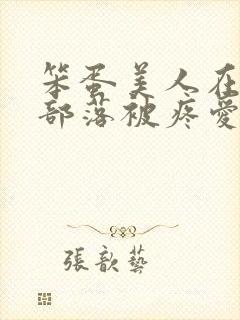 笨蛋美人在
部落被疼愛
張歆藝